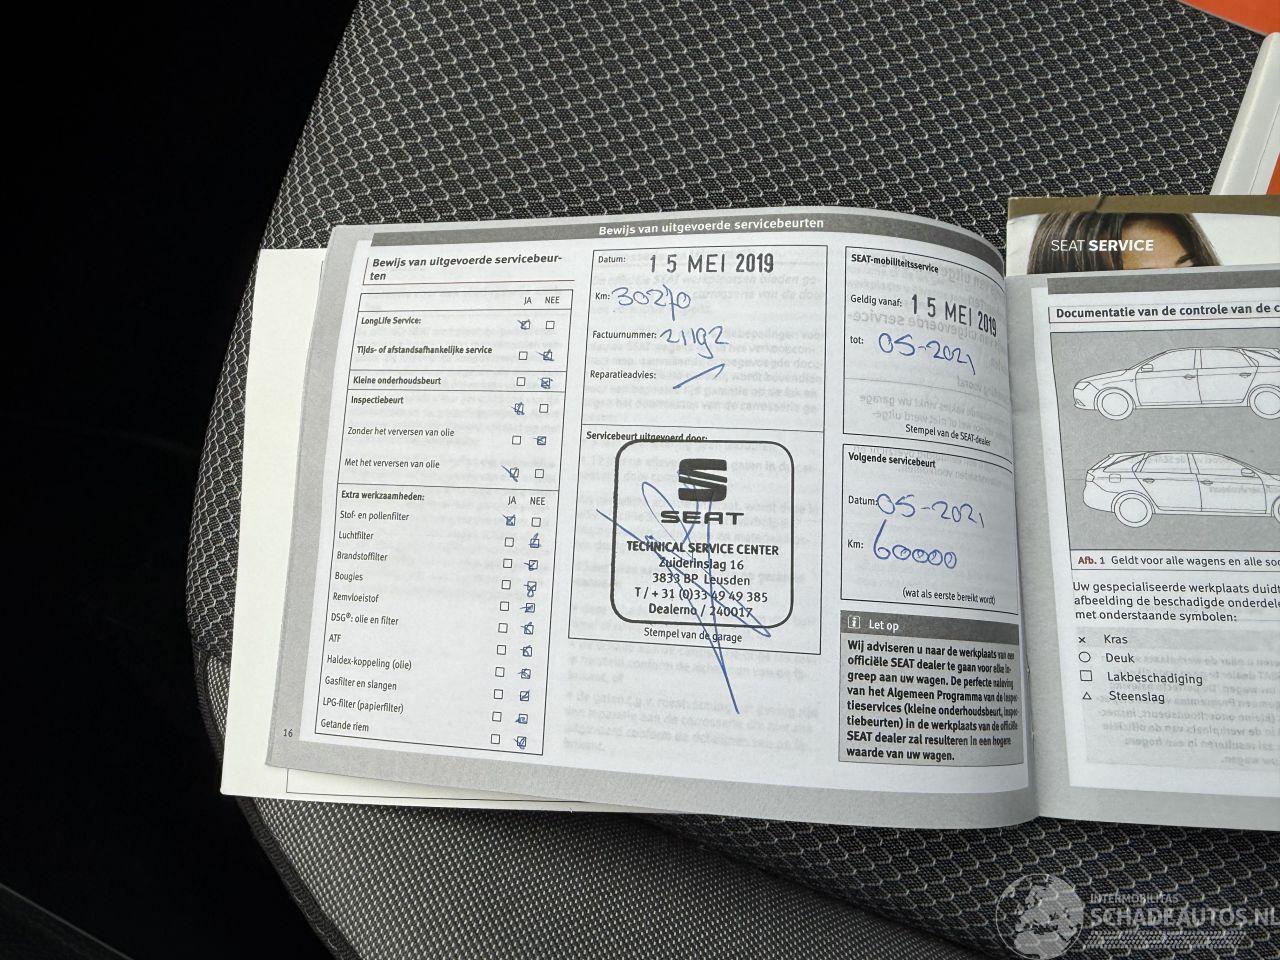 Bewijs van uitgevoerde servicebeurten
Bewijs van uitgevoerde servicebeur-
ten
JA NEE
LongLife Service:
Tijds- of afstandsafhankelijke service
Kleine onderhoudsbeurt
Inspectiebeurt
Zonder het verversen van olie
Met het verversen van olie
Extra werkzaamheden: JA NEE
Stof- en pollenfilter
Luchtfilter
Brandstoffilter
Bougies
Remvloeistof
DSG®: olie en filter
ATF
Haldex-koppeling (olie)
Gasfilter en slangen
LPG-filter (papierfilter)
Getande riem
16
Datum: 15 MEI 2019
Km: 30270
Factuurnummer: 21192
Reparatieadvies:
Servicebeurt uitgevoerd door:
SEAT
TECHNICAL SERVICE CENTER
Zuiderinslag 16
3833 BP Leusden
T / + 31 (0)33 49 49 385
Dealerno / 240017
Stempel van de garage
SEAT-mobiliteitsservice
Geldig vanaf: 15 MEI 2019
tot: 05-2021
Stempel van de SEAT-dealer
Volgende servicebeurt
Datum: 05-2021
Km: 60000
(wat als eerste bereikt wordt)
i Let op
Wij adviseren u naar de werkplaats van een
officiële SEAT dealer te gaan voor elke in-
greep aan uw wagen. De perfecte naleving
van het Algemeen Programma van de Inspec-
tieservices (kleine onderhoudsbeurt, inspec-
tiebeurten) in de werkplaats van de officiële
SEAT dealer zal resulteren in een hogere
waarde van uw wagen.
SEAT SERVICE
Documentatie van de controle van de c
Afb. 1 Geldt voor alle wagens en alle soo
Uw gespecialiseerde werkplaats duidt
afbeelding de beschadigde onderdele
met onderstaande symbolen:
× Kras
○ Deuk
□ Lakbeschadiging
△ Steenslag
INTERMOBILITAS
SCHADEAUTOS.NL